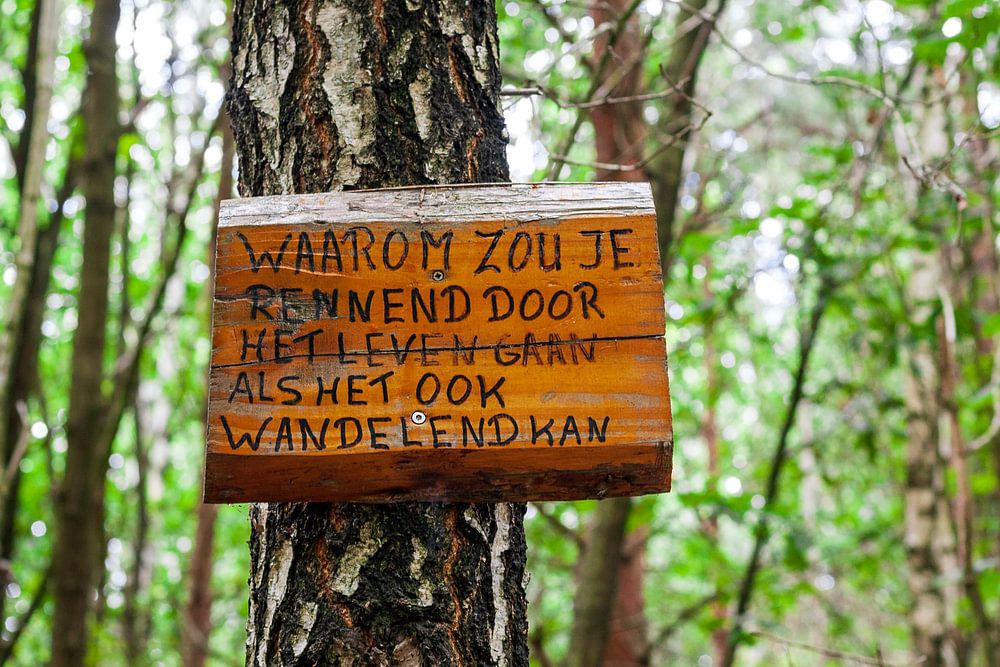 WAAROM ZOU JE
RENNEND DOOR
HET LEVEN GAAN
ALS HET OOK
WANDELEND KAN